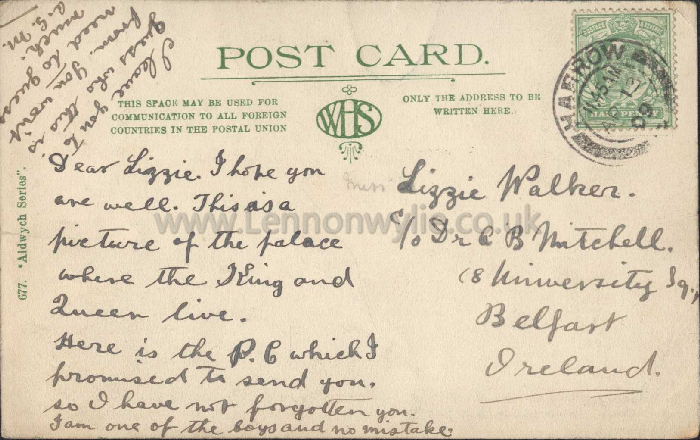 I leave you to
guess who this is
from. You won't
need to guess
much.
A. E. M.
POST CARD.
THIS SPACE MAY BE USED FOR
COMMUNICATION TO ALL FOREIGN
COUNTRIES IN THE POSTAL UNION
WHS
ONLY THE ADDRESS TO BE
WRITTEN HERE.
HARROW
09
HALFPENNY
677. "Aldwych Series".
Dear Lizzie. I hope you
are well. This is a
picture of the palace
where the King and
Queen live.
Here is the P.C which I
promised to send you.
so I have not forgotten you.
I am one of the boys and no mistake.
Miss
Lizzie Walker.
c/o Dr A B Mitchell.
18 University Sq.,
Belfast
Ireland.
www.Lennonwylie.co.uk